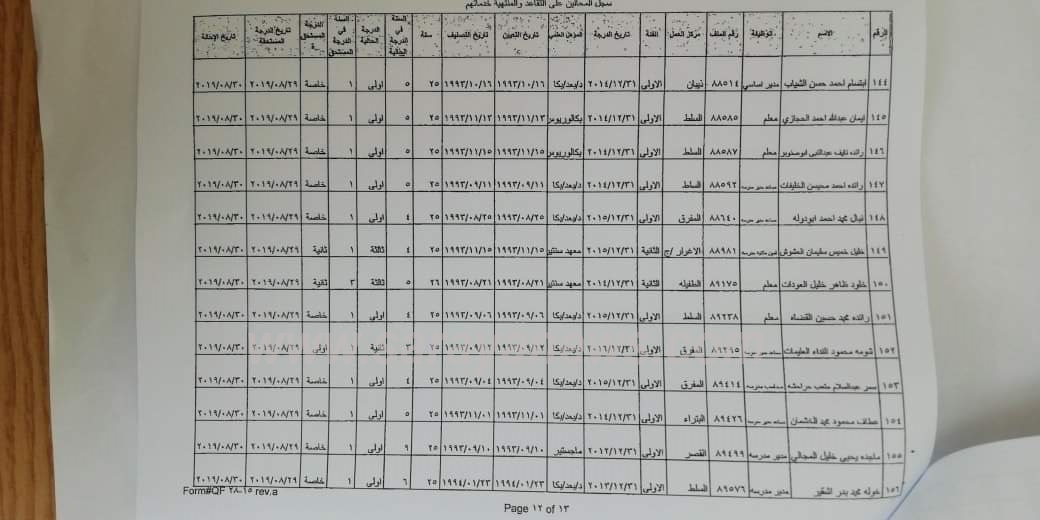 سجل المحالين على التقاعد والمنتهية خدماتهم
الرقم الاسم الوظيفة رقم الملف مركز العمل الفئة تاريخ الدرجة المؤهل العلمي تاريخ التعيين تاريخ التصنيف سنة السنة في الدرجة الحالية الدرجة الحالية السنة في الدرجة المستحق الدرجة المستحق تاريخ الدرجة المستحقة تاريخ الإحالة
١٤٤ ابتسام احمد حسن الشياب مدير اساسي ٨٨٥١٤ ذيبان الاولى ٢٠١٤/١٢/٣١ د/بعد/بكا ١٩٩٣/١٠/١٦ ١٩٩٣/١٠/١٦ ٢٥ ٥ اولى ١ خاصة ٢٠١٩/٠٨/٢٩ ٢٠١٩/٠٨/٣٠
١٤٥ ايمان عبدالله احمد الحجازي معلم ٨٨٥٨٥ السلط الاولى ٢٠١٤/١٢/٣١ بكالوريوس ١٩٩٣/١١/١٣ ١٩٩٣/١١/١٣ ٢٥ ٥ اولى ١ خاصة ٢٠١٩/٠٨/٢٩ ٢٠١٩/٠٨/٣٠
١٤٦ رائده نايف عبدالنبي ابوصنوبر معلم ٨٨٥٨٧ السلط الاولى ٢٠١٤/١٢/٣١ بكالوريوس ١٩٩٣/١١/١٥ ١٩٩٣/١١/١٥ ٢٥ ٥ اولى ١ خاصة ٢٠١٩/٠٨/٢٩ ٢٠١٩/٠٨/٣٠
١٤٧ رائده احمد محيسن الخليفات مساعد مدير مدرسة ٨٨٥٩٢ السلط الاولى ٢٠١٤/١٢/٣١ د/بعد/بكا ١٩٩٣/٠٩/١١ ١٩٩٣/٠٩/١١ ٢٥ ٥ اولى ١ خاصة ٢٠١٩/٠٨/٢٩ ٢٠١٩/٠٨/٣٠
١٤٨ نبال محمد احمد ابودوله مساعد مدير مدرسة ٨٨٦٤٠ المفرق الاولى ٢٠١٥/١٢/٣١ د/بعد/بكا ١٩٩٣/٠٨/٢٥ ١٩٩٣/٠٨/٢٥ ٢٥ ٤ اولى ١ خاصة ٢٠١٩/٠٨/٢٩ ٢٠١٩/٠٨/٣٠
١٤٩ خليل خميس سليمان المشوش ٨٨٩٨١ الاغوار /ج الثانية ٢٠١٥/١٢/٣١ معهد سنتين ١٩٩٣/١١/١٥ ١٩٩٣/١١/١٥ ٢٥ ٤ ثالثة ١ ثانية ٢٠١٩/٠٨/٢٩ ٢٠١٩/٠٨/٣٠
١٥٠ خلود ظاهر خليل العودات معلم ٨٩١٧٥ الطفيله الثانية ٢٠١٤/١٢/٣١ معهد سنتين ١٩٩٣/٠٨/٢١ ١٩٩٣/٠٨/٢١ ٢٦ ٥ ثالثة ٣ ثانية ٢٠١٩/٠٨/٢٩ ٢٠١٩/٠٨/٣٠
١٥١ رائده محمد حسين القضاه معلم ٨٩٢٣٨ السلط الاولى ٢٠١٥/١٢/٣١ د/بعد/بكا ١٩٩٣/٠٩/٠٦ ١٩٩٣/٠٩/٠٦ ٢٥ ٤ اولى ١ خاصة ٢٠١٩/٠٨/٢٩ ٢٠١٩/٠٨/٣٠
١٥٢ شومه محمود النداء العليمات المفرق الاولى ٢٠١٦/١٢/٣١ د/بعد/بكا ١٩٩٣/٠٩/١٢ ١٩٩٣/٠٩/١٢ ٢٥ ٣ ثانية ١ اولى ٢٠١٩/٠٨/٢٩ ٢٠١٩/٠٨/٣٠
١٥٣ سمر عبدالسلام متعب حراحشه ٨٩٤١٤ المفرق الاولى ٢٠١٥/١٢/٣١ د/بعد/بكا ١٩٩٣/٠٩/٠٤ ١٩٩٣/٠٩/٠٤ ٢٥ ٤ اولى ١ خاصة ٢٠١٩/٠٨/٢٩ ٢٠١٩/٠٨/٣٠
١٥٤ عطاف محمود محمد الخشمان مساعد مدير مدرسة ٨٩٤٢٦ البتراء الاولى ٢٠١٤/١٢/٣١ د/بعد/بكا ١٩٩٣/١١/٠١ ١٩٩٣/١١/٠١ ٢٥ ٥ اولى ١ خاصة ٢٠١٩/٠٨/٢٩ ٢٠١٩/٠٨/٣٠
١٥٥ ماجده يحيى خليل المجالي مدير مدرسه ٨٩٤٩٩ القصر الاولى ٢٠١٢/١٢/٣١ ماجستير ١٩٩٣/٠٩/١٠ ١٩٩٣/٠٩/١٠ ٢٥ ٩ اولى ١ خاصة ٢٠١٩/٠٨/٢٩ ٢٠١٩/٠٨/٣٠
١٥٦ خوله محمد بدر الشقير مدير مدرسه ٨٩٥٧٦ السلط الاولى ٢٠١٣/١٢/٣١ د/بعد/بكا ١٩٩٤/٠١/٢٣ ١٩٩٤/٠١/٢٣ ٢٥ ٦ اولى ١ خاصة ٢٠١٩/٠٨/٢٩ ٢٠١٩/٠٨/٣٠
Form#QF ٢٨-١٥ rev.a
Page ١٢ of ١٣